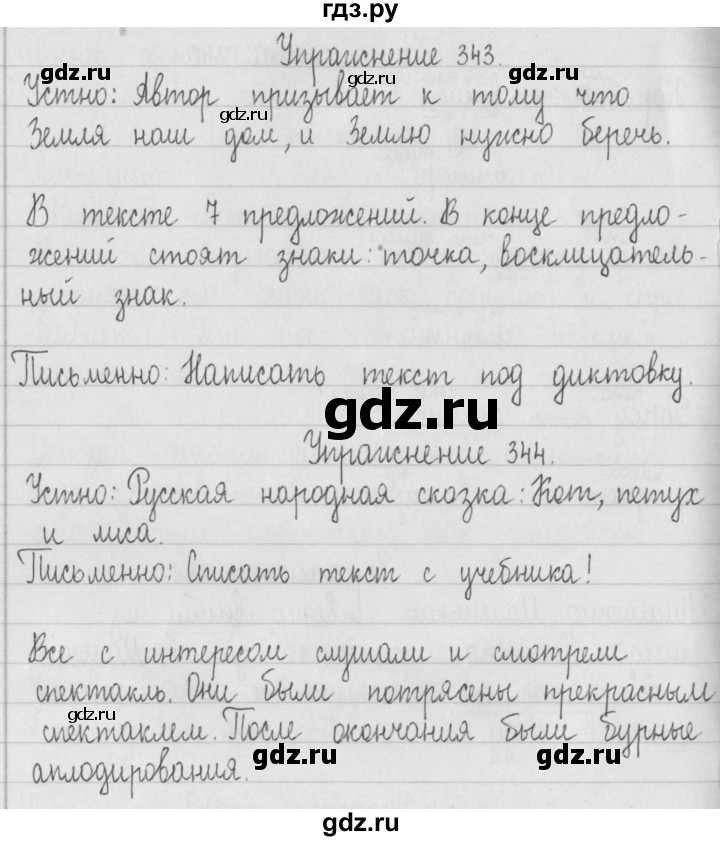 гдз.ру
Упражнение 343.
gdz.ru gdz.ru
Устно: Автор призывает к тому что
gdz.ru
Земля наш дом, и Землю нужно беречь.
В тексте 7 предложений. В конце предло-
жений стоят знаки: точка, восклицатель-
ный знак.
Письменно: Написать текст под диктовку.
gdz.ru
Упражнение 344.
Устно: Русская народная сказка: Кот, петух
и лиса.
Письменно: Списать текст с учебника!
Все с интересом слушали и смотрели
спектакль. Они были потрясены прекрасным
gdz.ru
спектаклем. После окончания были бурные
gdz.ru gdz.ru
аплодирования.
gdz.ru